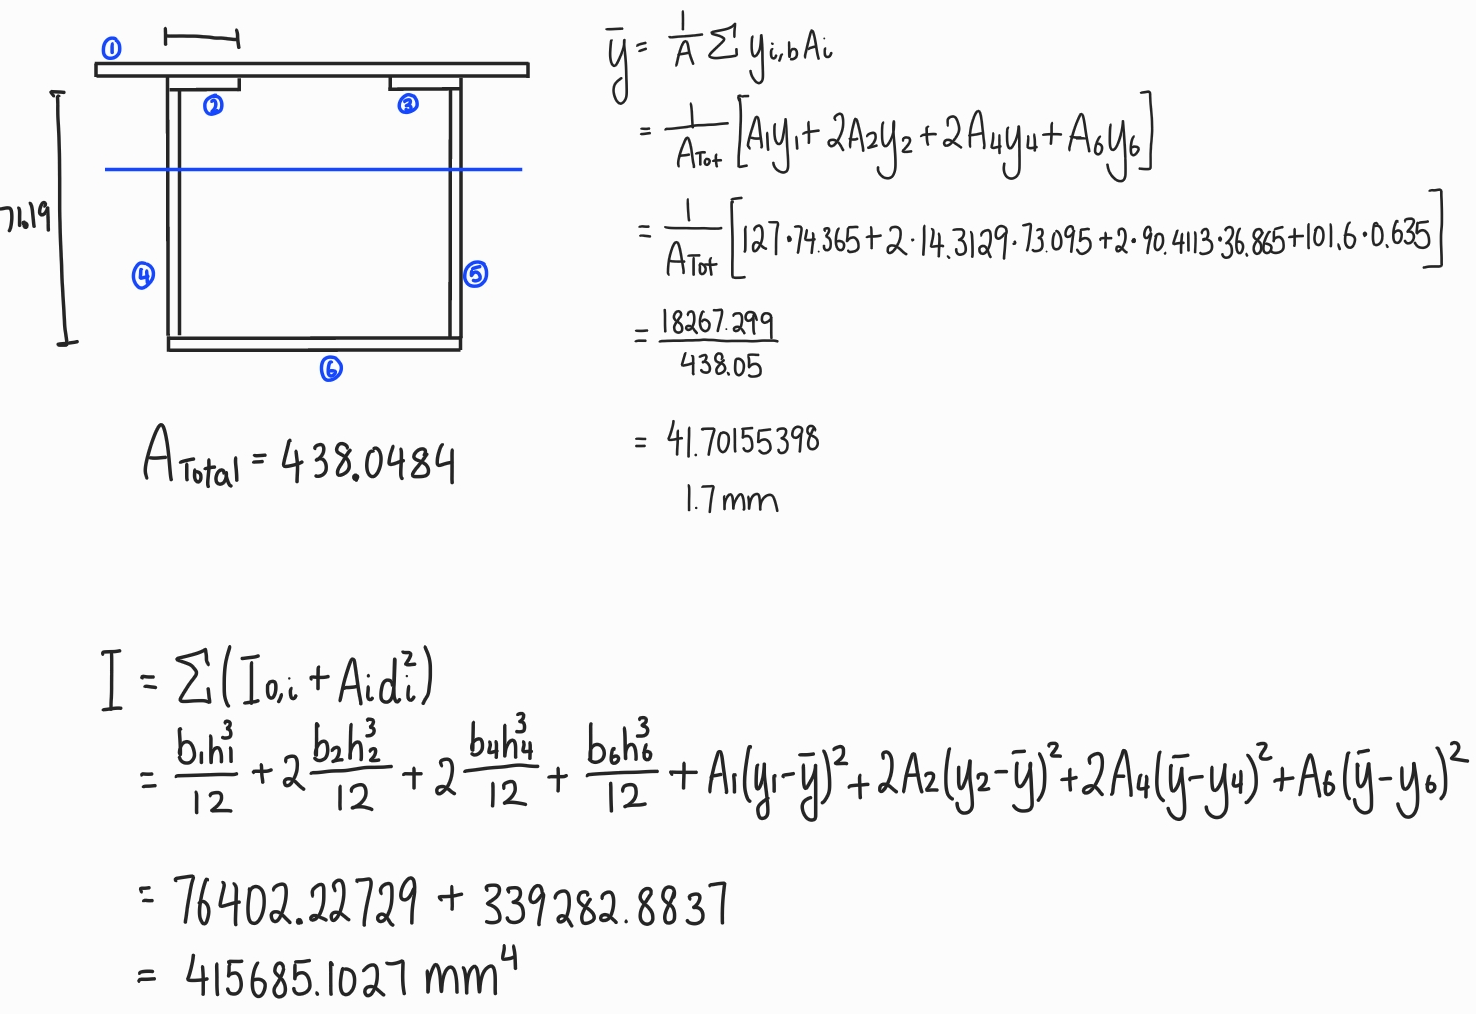 ①
②
③
71.19
④
⑤
⑥
A_Total = 438.0484
ȳ = 1/A Σ y_i,b A_i
= 1/A_Tot [A₁y₁ + 2A₂y₂ + 2A₄y₄ + A₆y₆]
= 1/A_Tot [127·74.365 + 2·14.3129·73.095 + 2·90.4113·36.865 + 101.6·0.635]
= 18267.299/438.05
= 41.70155398
1.7mm
I = Σ(I₀,i + A_i d_i²)
= b₁h₁³/12 + 2 b₂h₂³/12 + 2 b₄h₄³/12 + b₆h₆³/12 + A₁(y₁-ȳ)² + 2A₂(y₂-ȳ)² + 2A₄(ȳ-y₄)² + A₆(ȳ-y₆)²
= 76402.22729 + 339282.8837
= 415685.1027 mm⁴